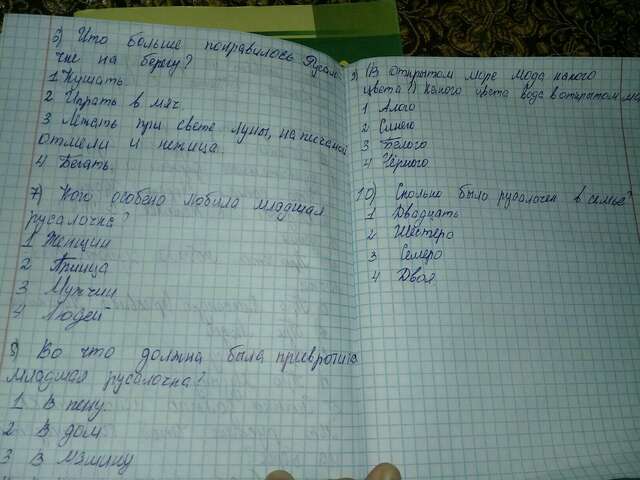 6) Что больше понравилось Русало-
чке на берегу?
1 Кушать.
2 Играть в мяч.
3 Лежать при свете луны, на песчаной
отмели и нежица
4 Бегать.
7) Кого особено любила младшая
русалочка?
1 Женщин
2 Птица
3 Мужчин
4 Людей
8) Во что должна была превротится
младшая русалочка?
1 В пену.
2 В дом
3 В
9) В открытом море
цвета?) Какого цвета вода в открытом
1 Алого
2 Синего
3 Белого
4 Чёрного.
10) Сколько было русалочек в семье?
1 Двадцать
2 Шестеро
3 Семеро
4 Двоя